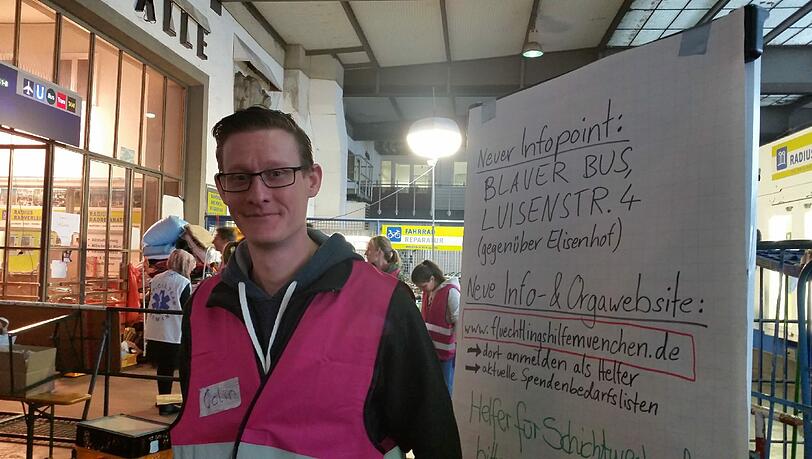 ALLE
U
RADIUS
FAHRRAD
REPARATUR
RADIUS
Neuer Infopoint:
BLAUER BUS,
LUISENSTR. 4
(gegenüber Elisenhof)
Neue Info- & Orgawebsite:
www.fluechtlingshilfemuenchen.de
→ dort anmelden als Helfer
→ aktuelle Spendenbedarfslisten
Helfer für
bitte